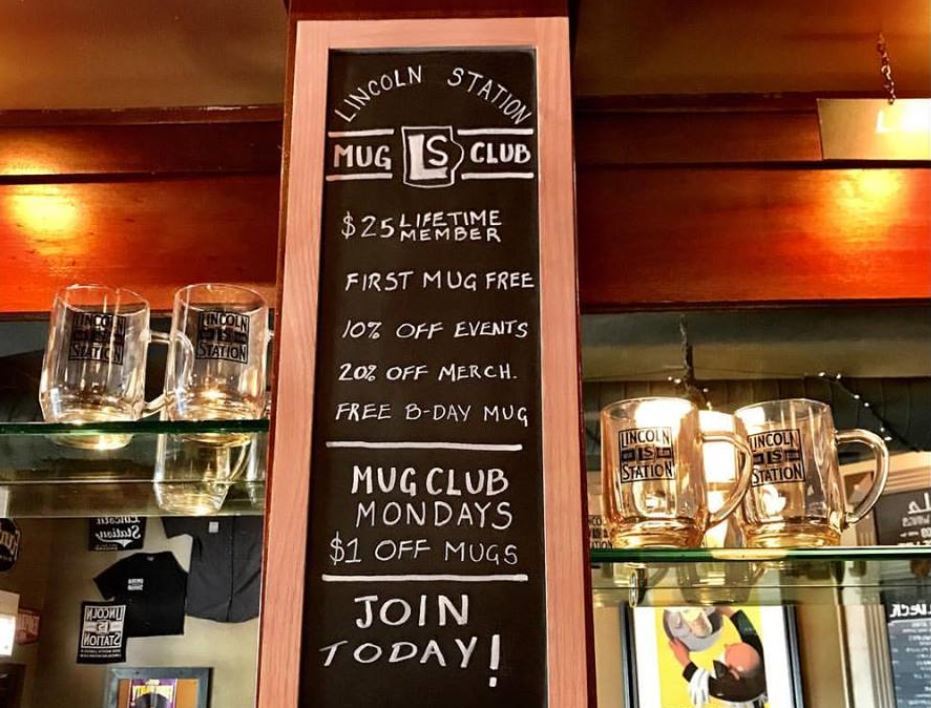 LINCOLN STATION
MUG LS CLUB
$25 LIFETIME
MEMBER
FIRST MUG FREE
10% OFF EVENTS
20% OFF MERCH.
FREE B-DAY MUG
MUG CLUB
MONDAYS
$1 OFF MUGS
JOIN
TODAY!
LINCOLN
LS
STATION
LINCOLN
LS
STATION
LINCOLN
LS
STATION
LINCOLN
LS
STATION
Lincoln
Station
LINCOLN
LS
STATION